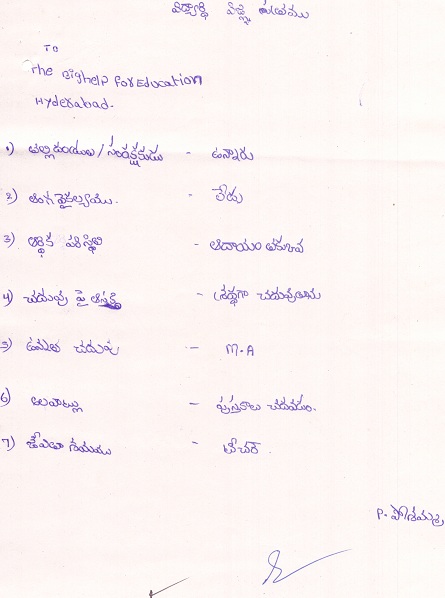 విద్యార్థి విజ్ఞప్తి పత్రము
TO
The Bighelp For Education
Hyderabad.
1) తల్లిదండ్రులు / సంరక్షకుడు - ఉన్నారు
2) అంగ వైకల్యము. - లేదు
3) ఆర్థిక పరిస్థితి - ఆదాయం తక్కువ
4) చదువు పై ఆసక్తి - శ్రద్ధగా చదువుతాను
5) ఉన్నత చదువు - M.A
6) అలవాట్లు - పుస్తకాలు చదవడం.
7) - టీచర్
P. పోశమ్మ